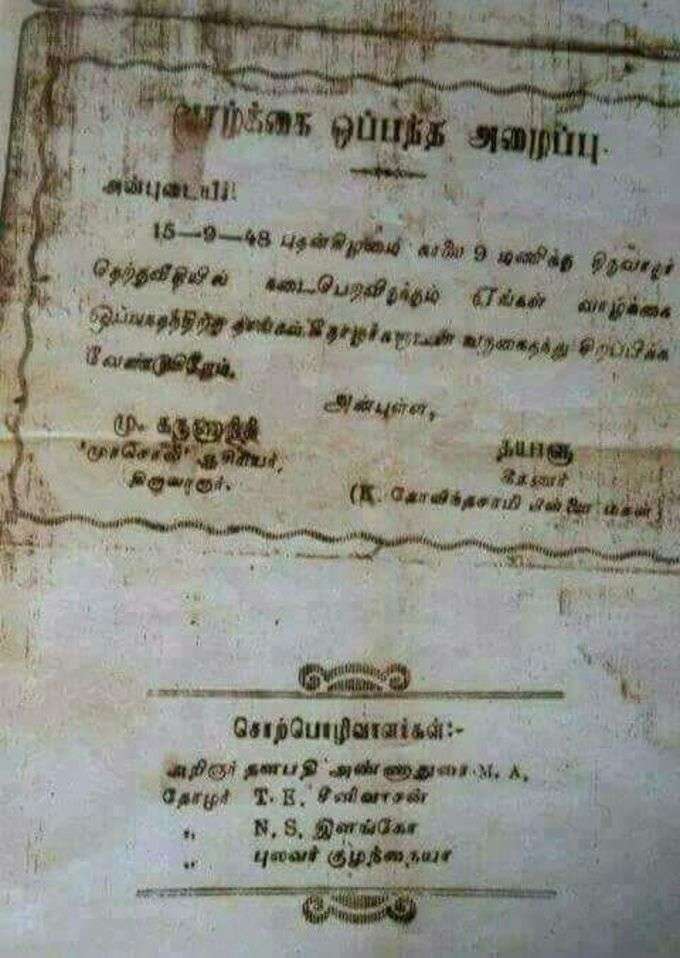 வாழ்க்கை ஒப்பந்த அழைப்பு.
அன்புடையீர்!
15—9—48 புதன்கிழமை காலை 9 மணிக்கு திருவாரூர்
தெற்குவீதியில் நடைபெறவிருக்கும் எங்கள் வாழ்க்கை
ஒப்பந்தத்திற்கு தாங்கள் தோழர்களுடன் வருகைதந்து சிறப்பிக்க
வேண்டுகிறோம்.
அன்புள்ள,
மு. கருணாநிதி
'முரசொலி' ஆசிரியர்,
திருவாரூர்.
தயாளு
(K. கோவிந்தசாமி பிள்ளை மகள்)
சொற்பொழிவாளர்கள்:-
அறிஞர் தளபதி அண்ணாதுரை M. A,
தோழர் T. K. சீனிவாசன்
„ N. S. இளங்கோ
„ புலவர் குழந்தையா